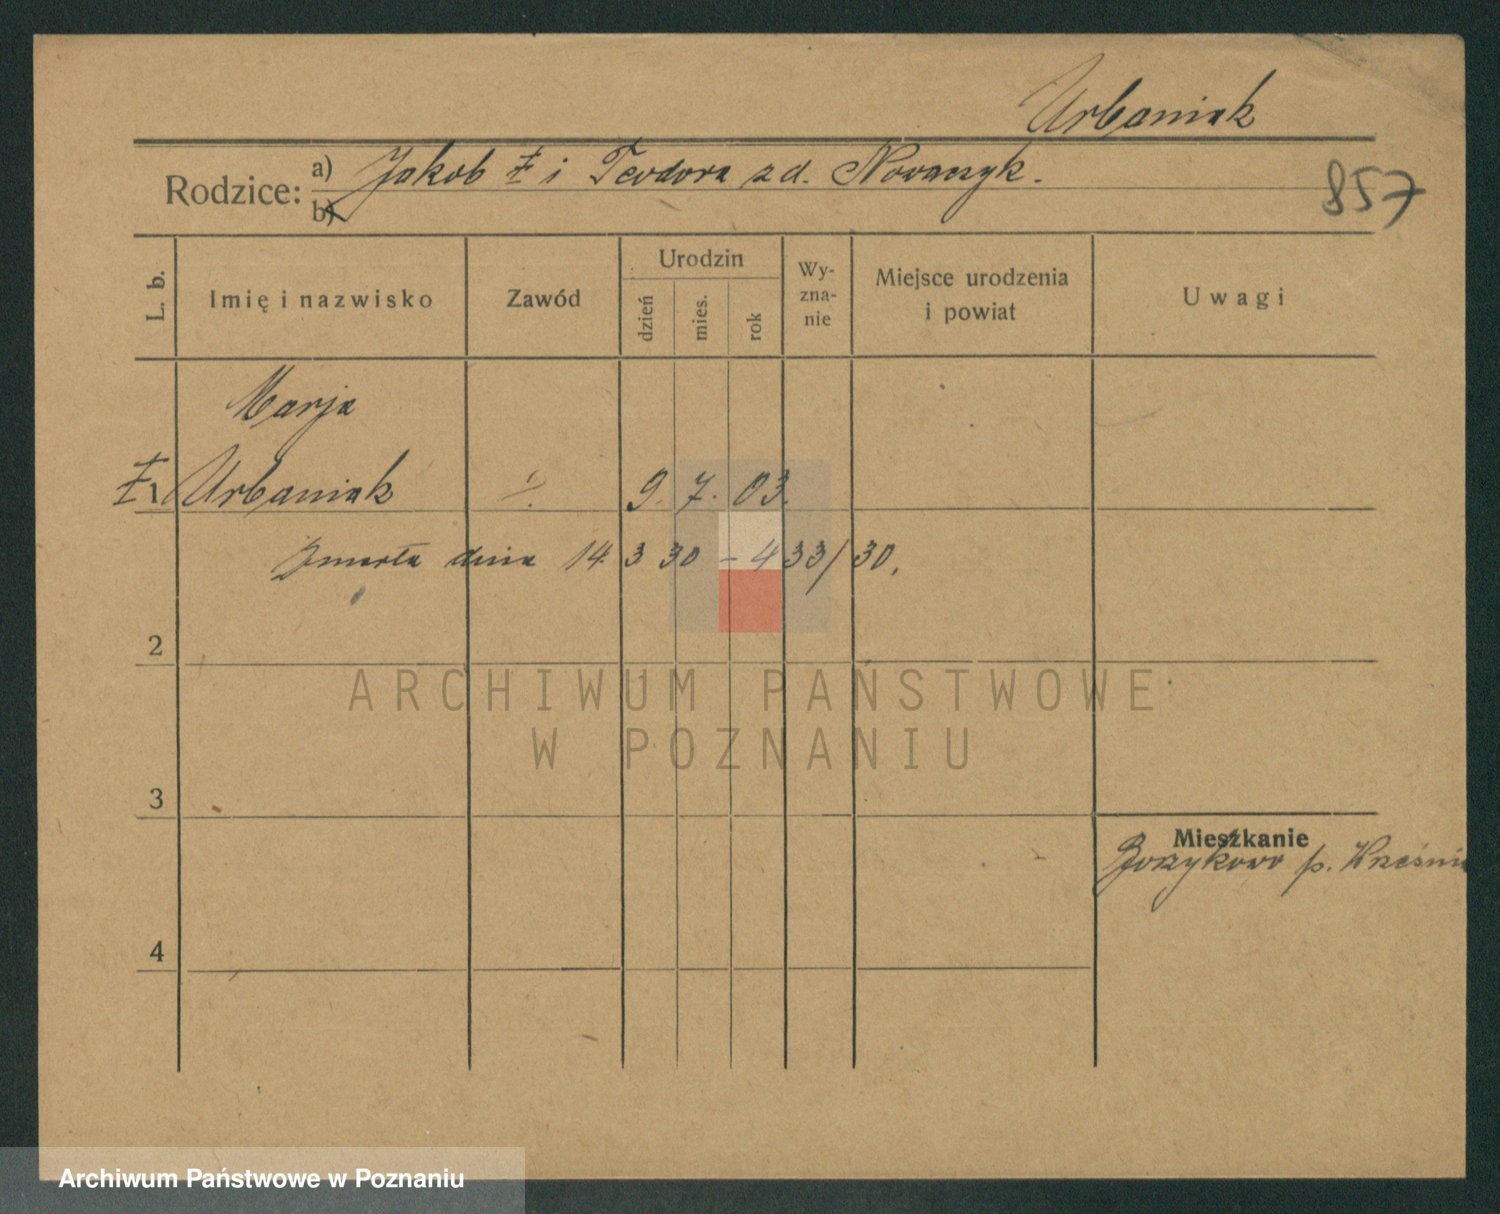 Urbaniak
Rodzice: a) Jakob ‡ i Teodora z d. Nowaczyk.
b)
857
L. b.
Imię i nazwisko
Zawód
Urodzin
dzień
mies.
rok
Wy-
zna-
nie
Miejsce urodzenia
i powiat
Uwagi
Marja
‡ 1 Urbaniak ÷ 9. 7. 03.
Zmarła dnia 14 3 30 – 433/30.
2
ARCHIWUM PAŃSTWOWE
W POZNANIU
3
Mieszkanie
p. Wrześni
4
Archiwum Państwowe w Poznaniu